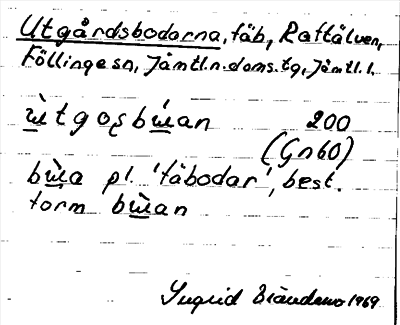 Utgårdsbodarna, fäb, Raftälven,
Föllinge sn, Jämtl. n. doms. tg, Jämtl. l.
ùtgoʂbẁan 200
(Gn60)
bẁa pl. 'fäbodar', best.
form bẁan
Ingrid 1969